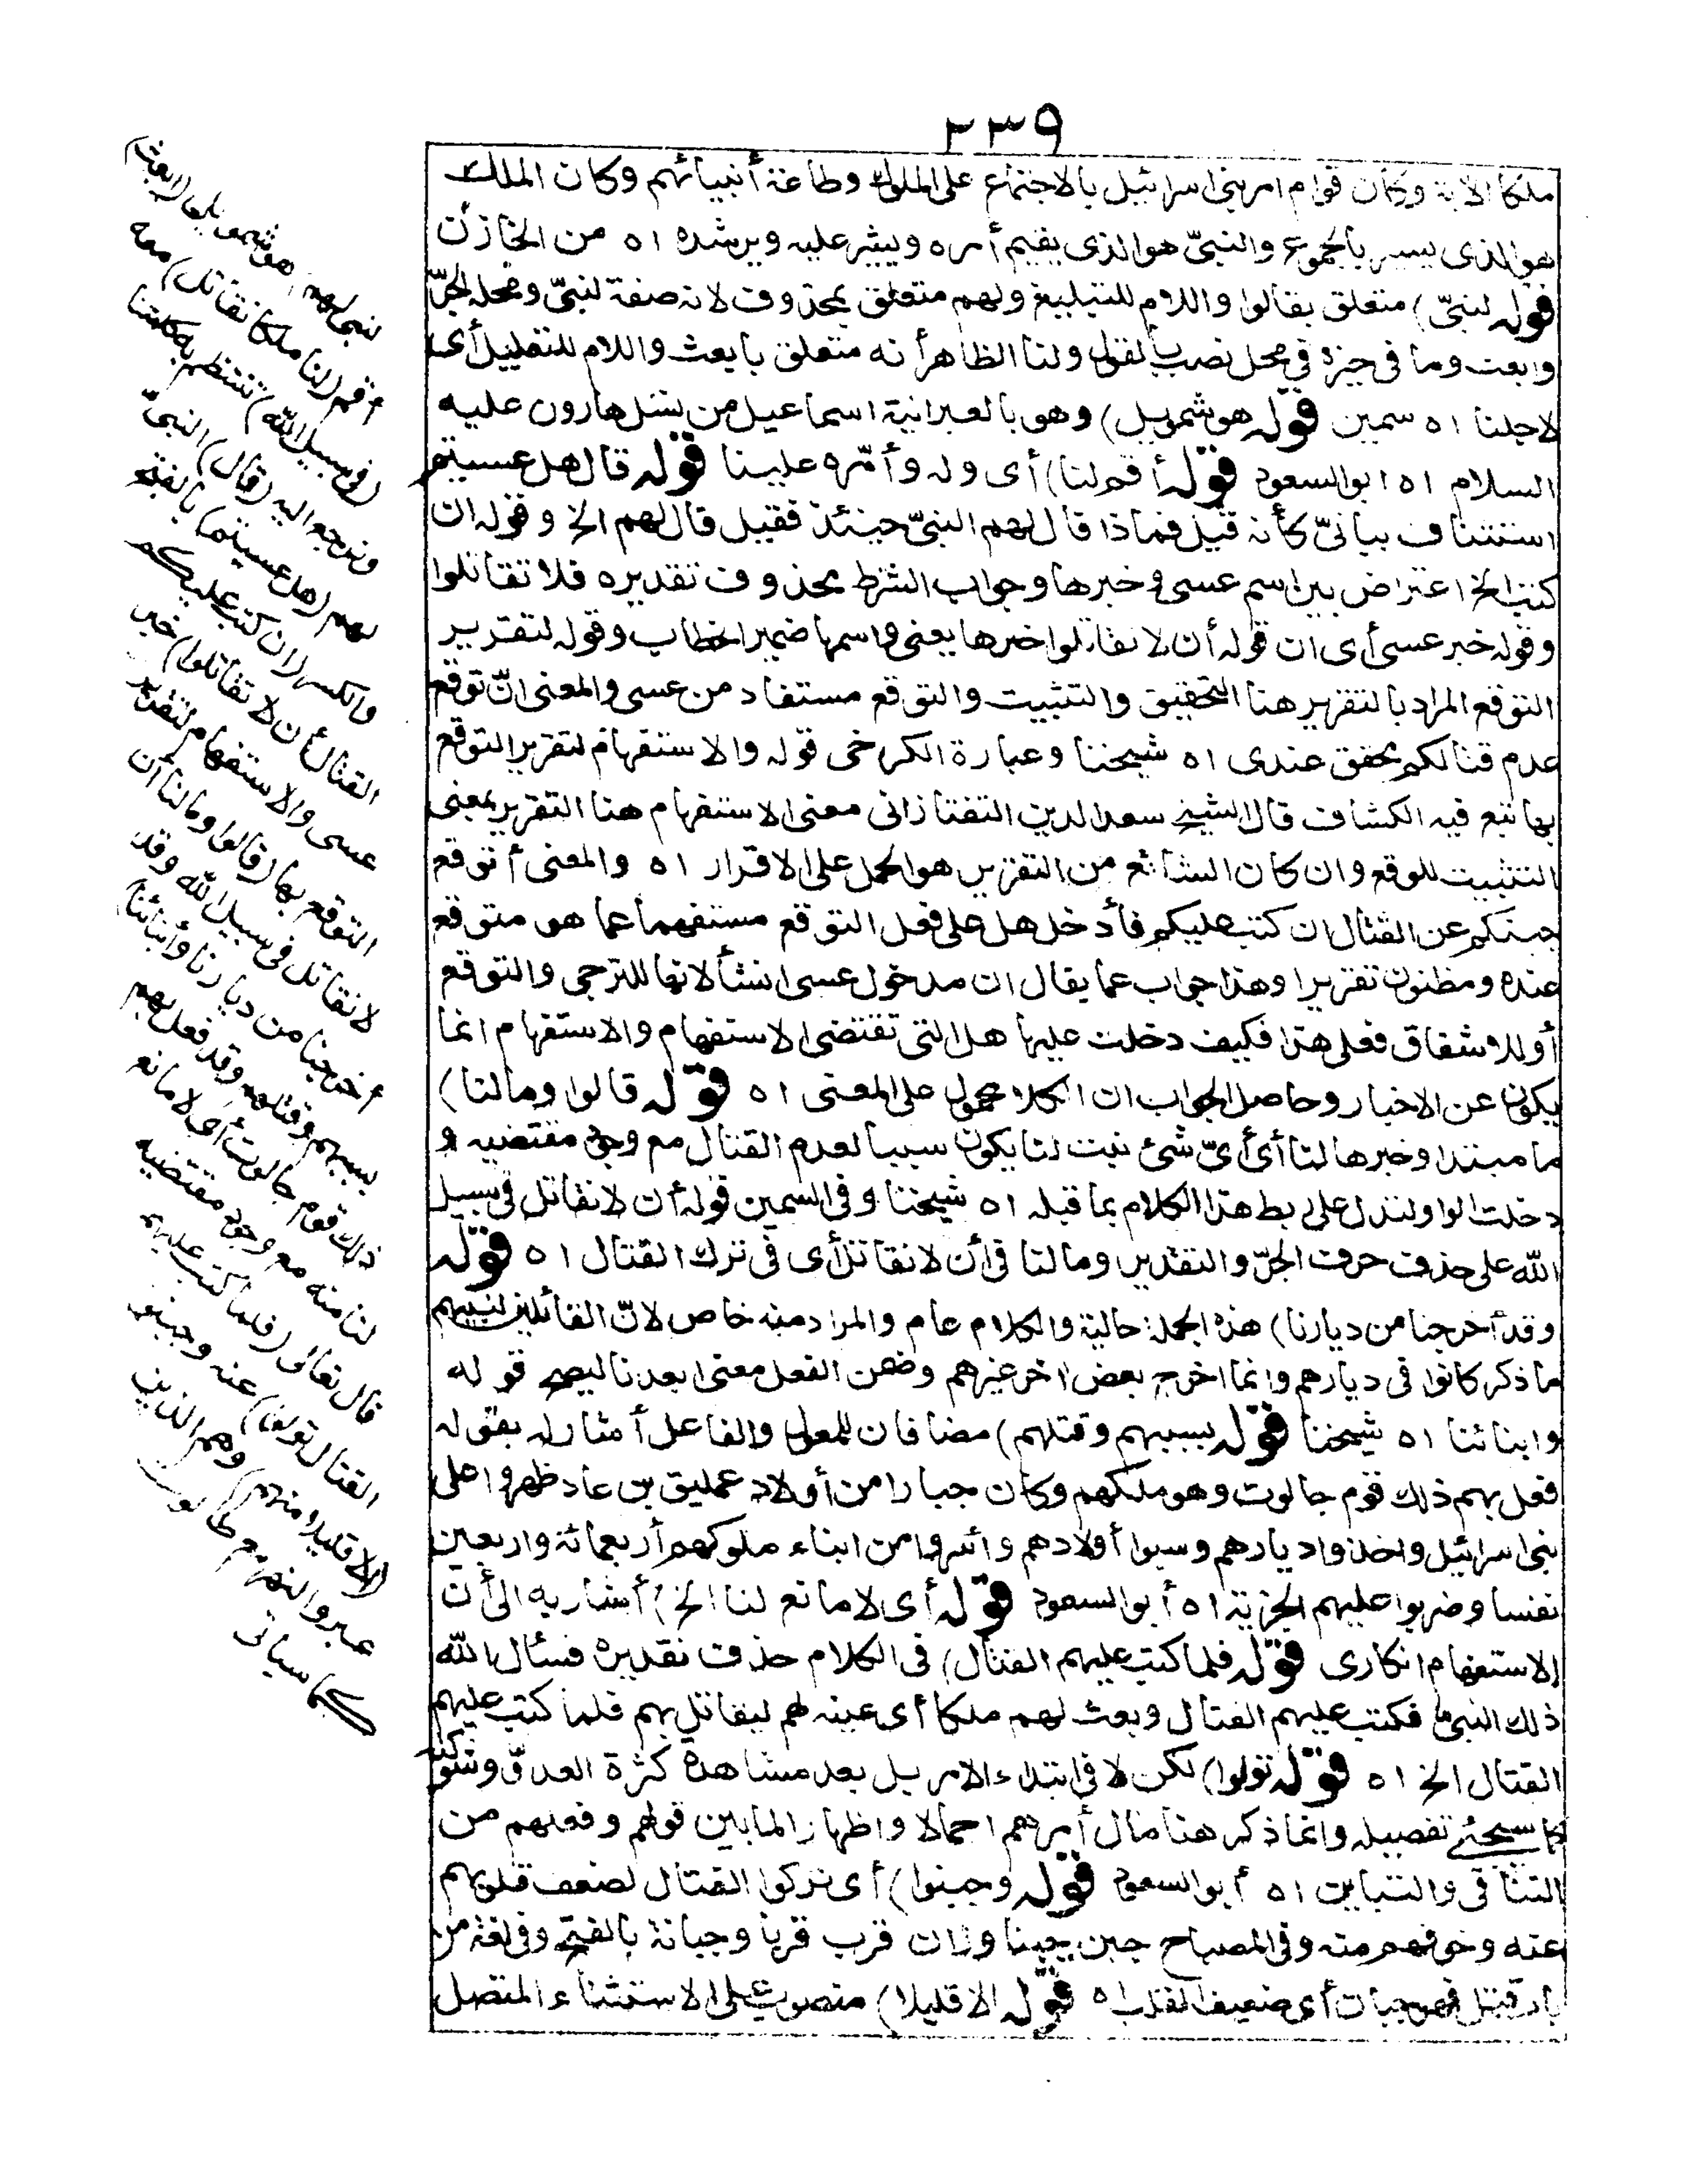 ٢٣٩
ملكا الآية وكان قوام امر بنى اسرائيل بالاجتماع على الملوك وطاعة أنبيائهم وكان الملك
هو الذى يسير بالجموع والنبىّ هو الذى يقيم أمره ويشير عليه ويرشده اه من الخازن
قوله لنبىّ) متعلق بقالوا واللام للتبليغ ولهم متعلق بمحذوف لانه صفة لنبىّ ومحله الجرّ
وابعث وما فى حيزه فى محل نصب بالقول ولنا الظاهر أنه متعلق بابعث واللام للتعليل أى
لاجلنا اه سمين قوله هو شمويل) وهو بالعبرانية اسماعيل من نسل هارون عليه
السلام اه ابو السعود قوله أقم لنا) أى وله وأمّره علينا قوله قال هل عسيتم
استئناف بيانىّ كأنه قيل فماذا قال لهم النبىّ حينئذ فقيل قال لهم الخ وقوله ان
كتب الخ اعتراض بين اسم عسى وخبرها وجواب الشرط محذوف تقديره فلا تقاتلوا
وقوله خبر عسى أى ان قوله أن لا تقاتلوا خبرها يعنى واسمها ضمير الخطاب وقوله لتقرير
التوقع المراد بالتقرير هنا التحقيق والتثبيت والتوقع مستفاد من عسى والمعنى انّ توقع
عدم قتالكم محقق عندى اه شيخنا وعبارة الكرخى قوله والاستفهام لتقرير التوقع
بها تبع فيه الكشاف قال الشيخ سعد الدين التفتازانى معنى الاستفهام هنا التقرير بمعنى
التثبيت للوقع وان كان الشائع من التقرير هو الحمل على الاقرار اه والمعنى أتوقع
جبنكم عن القتال ان كتب عليكم فأدخل هل على فعل التوقع مستفهما عما هو متوقع
عنده ومظنون تقريرا وهذا جواب عما يقال ان مدخول عسى انشأ لانها للترجى والتوقع
أو للاشفاق فعلى هذا فكيف دخلت عليها هل التى تقتضى الاستفهام والاستفهام انما
يكون عن الاخبار وحاصل الجواب ان الكلام محمول على المعنى اه قوله قالوا ومالنا)
ما مبتدا وخبرها لنا أى أىّ شئ ثبت لنا يكون سببا لعدم القتال مع وجود مقتضيه و
دخلت الواو لتدل على ربط هذا الكلام بما قبله اه شيخنا وفى السمين قوله أن لا نقاتل فى سبيل
الله على حذف حرف الجرّ والتقدير ومالنا فى أن لا نقاتل أى فى ترك القتال اه قوله
وقد أخرجنا من ديارنا) هذه الجملة حالية والكلام عام والمراد منه خاص لانّ القائلين لنبيهم
ما ذكر كانوا فى ديارهم وانما اخرج بعض اخر غيرهم وضمن الفعل معنى ابعدنا ليصح قوله
وابنائنا اه شيخنا قوله بسبيهم وقتلهم) مضافان للمفعول والفاعل أشار له بقوله
فعل بهم ذلك قوم جالوت وهو ملكهم وكان جبارا من أولاد عمليق بن عاد ظهروا على
بنى اسرائيل واخذوا ديارهم وسبوا أولادهم وأسروا من ابناء ملوكهم أربعمائة واربعين
نفسا وضربوا عليهم الجزية اه أبو السعود قوله أى لا مانع لنا الخ) أشار به الى أن
الاستفهام انكارى قوله فلما كتب عليهم القتال) فى الكلام حذف تقديره فسئال الله
ذلك النبىّ فكتب عليهم القتال وبعث لهم ملكا أى عينه لهم ليقاتل بهم فلما كتب عليهم
القتال الخ اه قوله تولوا) لكن لا فى ابتداء الامر بل بعد مشاهدة كثرة العدوّ وشوكته
كما سيجئ تفصيله وانما ذكر هنا مآل أمرهم اجمالا واظهارا لما بين قولهم وفعلهم من
التنافى والتباين اه أبو السعود قوله وجبنوا) أى تركوا القتال لضعف قلوبهم
عنه وخوفهم منه وفى المصباح جبن جبنا وزان قرب قربا وجبانة بالفتح وفى لغة من
باب قتل فهو جبان أى ضعيف القلب اه قوله الا قليلا) منصوب على الاستثناء المتصل
لنبى لهم) هو شمويل (ابعث)
أقم (لنا ملكا نقاتل) معه
(فى سبيل الله) تنتظم به كلمتنا
ونرجع اليه (قال) النبىّ
لهم (هل عسيتم) بالفتح
والكسر (ان كتب عليكم
القتال أن لا تقاتلوا) خبر
عسى والاستفهام لتقرير
التوقع بها (قالوا ومالنا أن
لا نقاتل فى سبيل الله وقد
أخرجنا من ديارنا وأبنائنا)
بسبيهم وقتلهم وقد فعل بهم
ذلك قوم جالوت أى لا مانع
لنا منه مع وجود مقتضيه
قال تعالى (فلما كتب عليهم
القتال تولوا) عنه وجبنوا
(الا قليلا منهم) وهم الذين
عبروا النهر مع طالوت
كما سيأتى